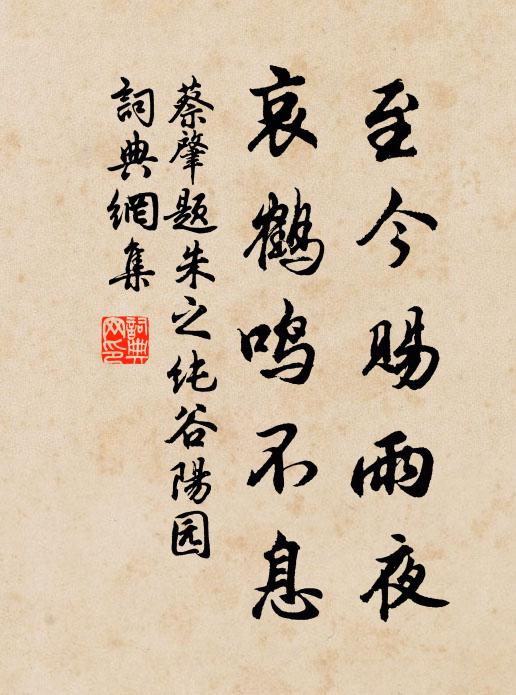 至今赐雨夜
哀鹤鸣不息
蔡肇题朱之纯谷陽园
詞典網集
詞典網印